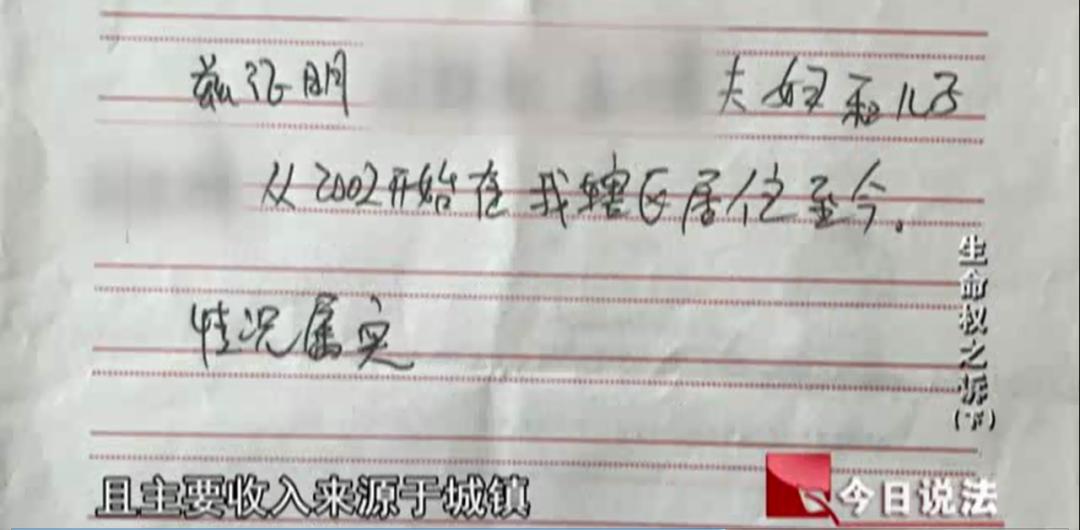 兹证明 夫妇和儿子
从2002开始在我辖区居住至今。
情况属实
生命权之诉(下)
且主要收入来源于城镇
今日说法